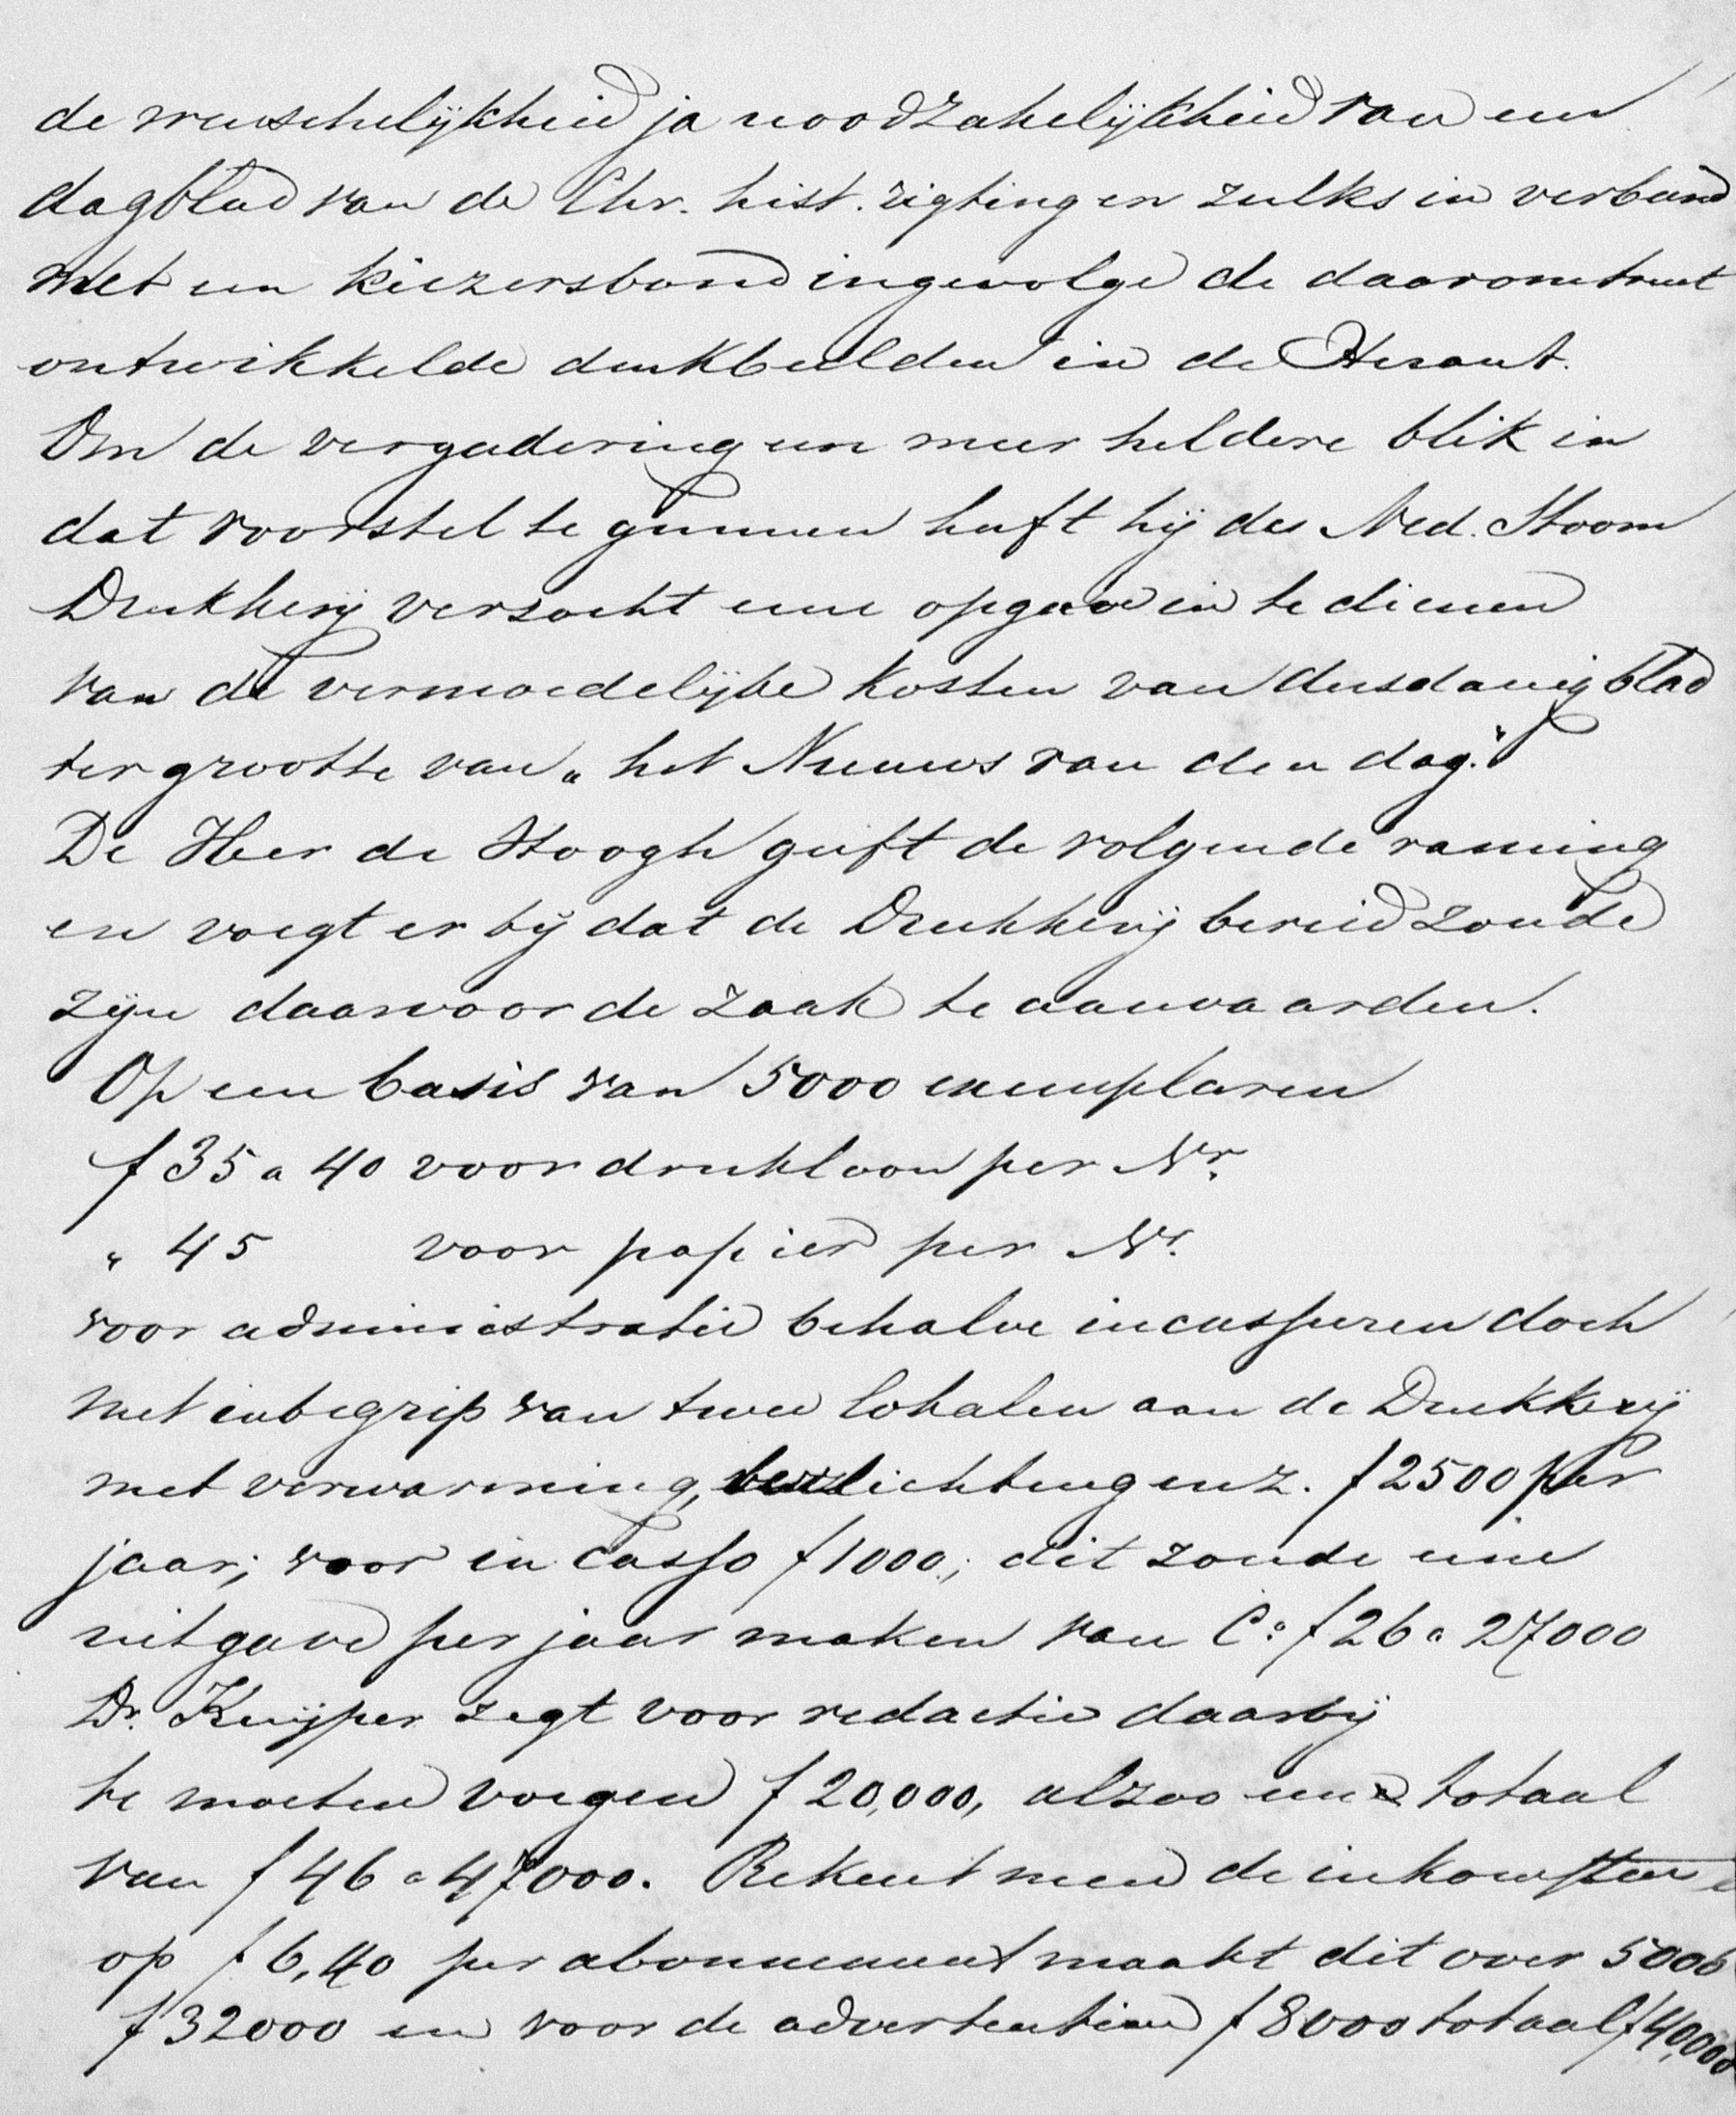 de wenschelijkheid ja noodzakelijkheid van een
dagblad van de Chr. hist. rigting en zulks in verband
met een kiezersbond ingevolge de daaromtrent
ontwikkelde denkbeelden in de Heraut.
Om de vergadering een meer heldere blik in
dat voorstel te gunnen heeft hij de Ned. Stoom
Drukkerij verzocht eene opgave in te dienen
van de vermoedelijke kosten van dusdanig blad
ter grootte van „het Nieuws van den dag."
De Heer de Hoogh geeft de volgende raming
en voegt er bij dat de Drukkerij bereid zoude
zijn daarvoor de zaak te aanvaarden.
Op een basis van 5000 exemplaren
f 35 a 40 voor drukloon per Nr.
„ 45 voor papier per Nr.
voor administratie behalve incasseren doch
met inbegrip van twee lokalen aan de Drukkerij
met verwarming, verlichting enz. f 2500 per
jaar; voor incasso f 1000; dit zoude eene
uitgave per jaar maken van Ca. f 26 a 27000
Dr. Kuijper zegt voor redactie daarbij
te moeten voegen f 20,000, alzoo een totaal
van f 46 a 47000. Rekent men de inkomsten
op f 6,40 per abonnement maakt dit over 5000
f 32000 en voor de advertentien f 8000 totaal f 40,000